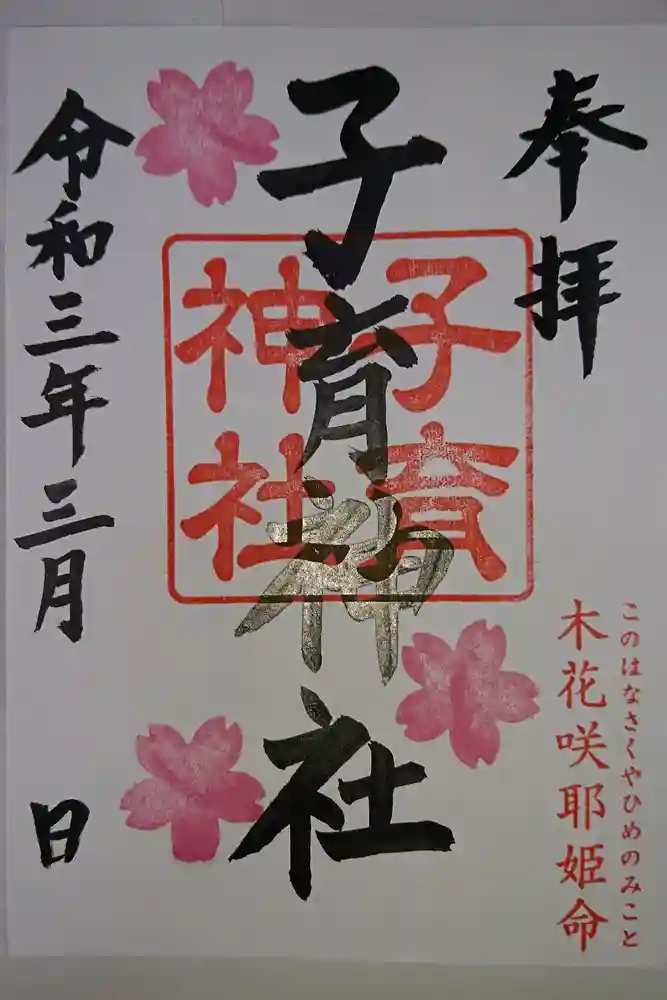 奉拝
このはなさくやひめのみこと
木花咲耶姫命
子育神社
子育
神社
令和三年三月 日